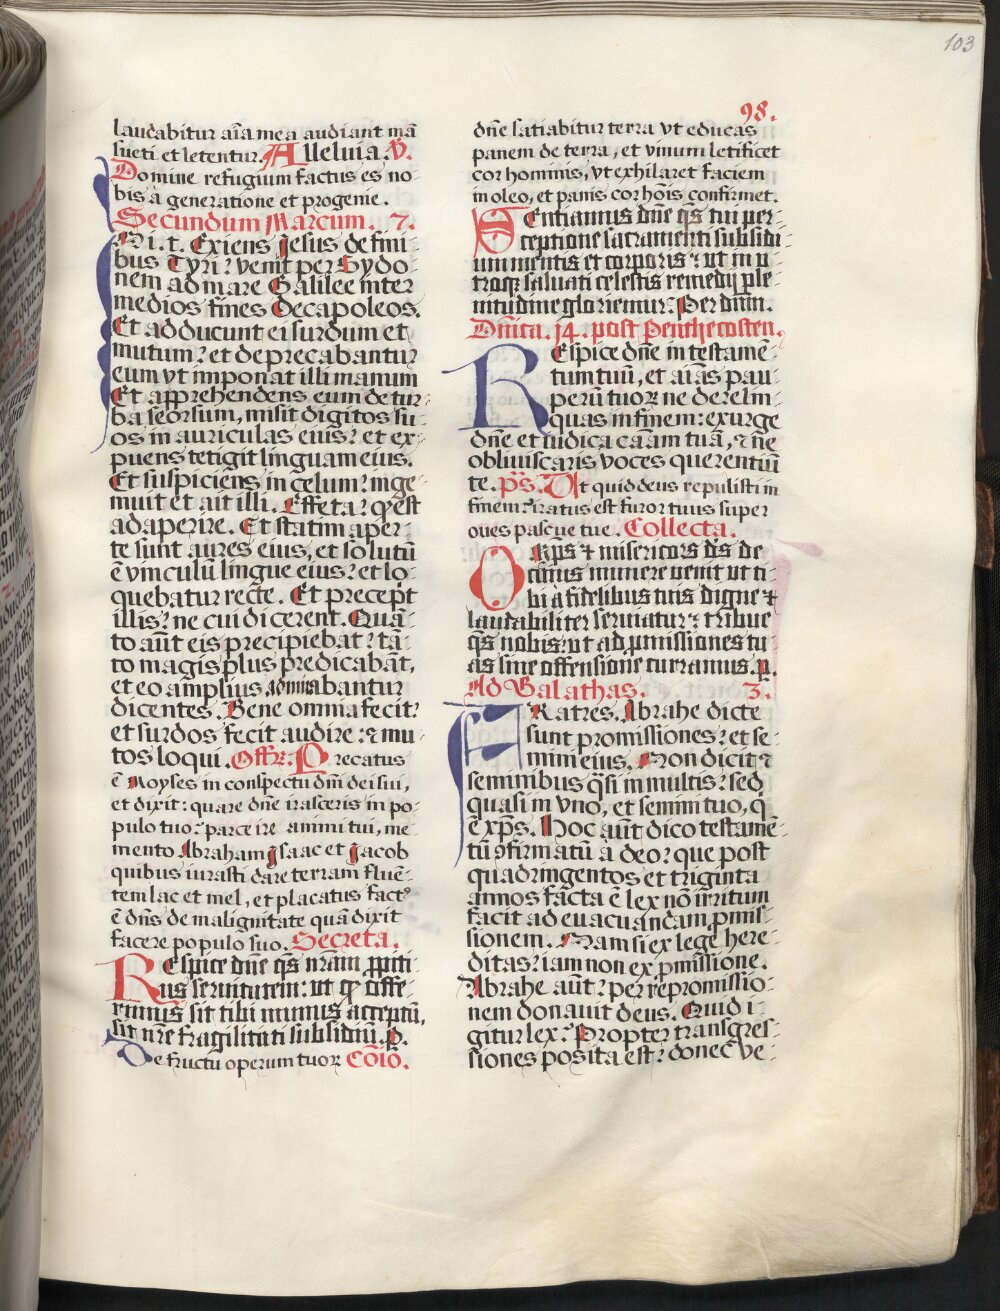 103
98.
laudabitur aĩa mea audiant mã
sueti et letentur. Alleluia. V.
Domine refugium factus es no-
bis a generatione et progenie.
Secundum Marcum. 7.
N i. t. Exiens Jesus de fini-
bus Tyri: venit per Sydo-
nem ad mare Galilee inter
medios fines Decapoleos.
Et adducunt ei surdum et
mutum: et deprecabantur
eum vt imponat illi manum
Et apprehendens eum de tur-
ba seorsum, misit digitos su-
os in auriculas eius: et ex-
puens tetigit linguam eius.
Et suspiciens in celum: inge-
muit et ait illi. Effeta: qđ est
adaperire. Et statim aper-
te sunt aures eius, et solutũ
ẽ vinculũ lingue eius: et lo-
quebatur recte. Et precepit
illis: ne cui dicerent. Quã-
to aũt eis precipiebat: tã-
to magis plus predicabãt,
et eo amplius admirabantur
dicentes. Bene omnia fecit:
et surdos fecit audire: & mu-
tos loqui. Offr. Precatus
ẽ Moyses in conspectu dñi dei sui,
et dixit: quare dñe irasceris in po-
pulo tuo: parce ire animi tui, me-
mento Abraham Jsaac et Jacob
quibus iurasti dare terram fluẽ-
tem lac et mel, et placatus factꝰ
ẽ dñs de malignitate quã dixit
facere populo suo. Secreta.
Respice dñe qs̃ nr̃am ꝓpiti-
us seruitutem: ut qđ offe-
rimus sit tibi munus acceptũ,
sit nr̃e fragilitati subsidiũ. P.
De fructu operum tuoꝝ Cõio.
dñe satiabitur terra vt educas
panem de terra, et vinum letificet
cor hominis, vt exhilaret faciem
in oleo, et panis cor hõis confirmet.
Sentiamus dñe qs̃ tui per-
ceptione sacramenti subsidi-
um mentis et corporis: ut in u-
troqꝫ saluati celestis remedij ple-
nitudine gloriemur. Per dñm.
Dñica. 14. post Penthecosten.
Respice dñe in testamẽ-
tum tuũ, et aĩas pau-
perũ tuoꝝ ne derelin-
quas in finem: exurge
dñe et iudica cãam tuã, & ne
obliuiscaris voces querentiũ
te. p̃s. Ut quid deus repulisti in
finem: iratus est furor tuus super
oues pascue tue. Collecta.
Omps̃ & misericors ds̃ de
cuius munere uenit ut ti-
bi a fidelibus tuis digne &
laudabiliter seruiatur: tribue
qs̃ nobis: ut ad ꝓmissiones tu-
as sine offensione curramus. p.
Ad Galathas. 3.
Fratres. Abrahe dicte
sunt promissiones: et se-
mini eius. Non dicit:
seminibus qs̃i in multis: sed
quasi in vno, et semini tuo, q̃
ẽ xp̃s. Hoc aũt dico testamẽ-
tũ ꝯfirmatũ a deo: que post
quadringentos et triginta
annos facta ẽ lex nõ irritum
facit ad euacuandam ꝓmis-
sionem. Nam si ex lege here-
ditas: iam non ex ꝓmissione.
Abrahe aũt: per repromissio-
nem donauit deus. Quid i-
gitur lex: Propter transgres-
siones posita est: donec ve-